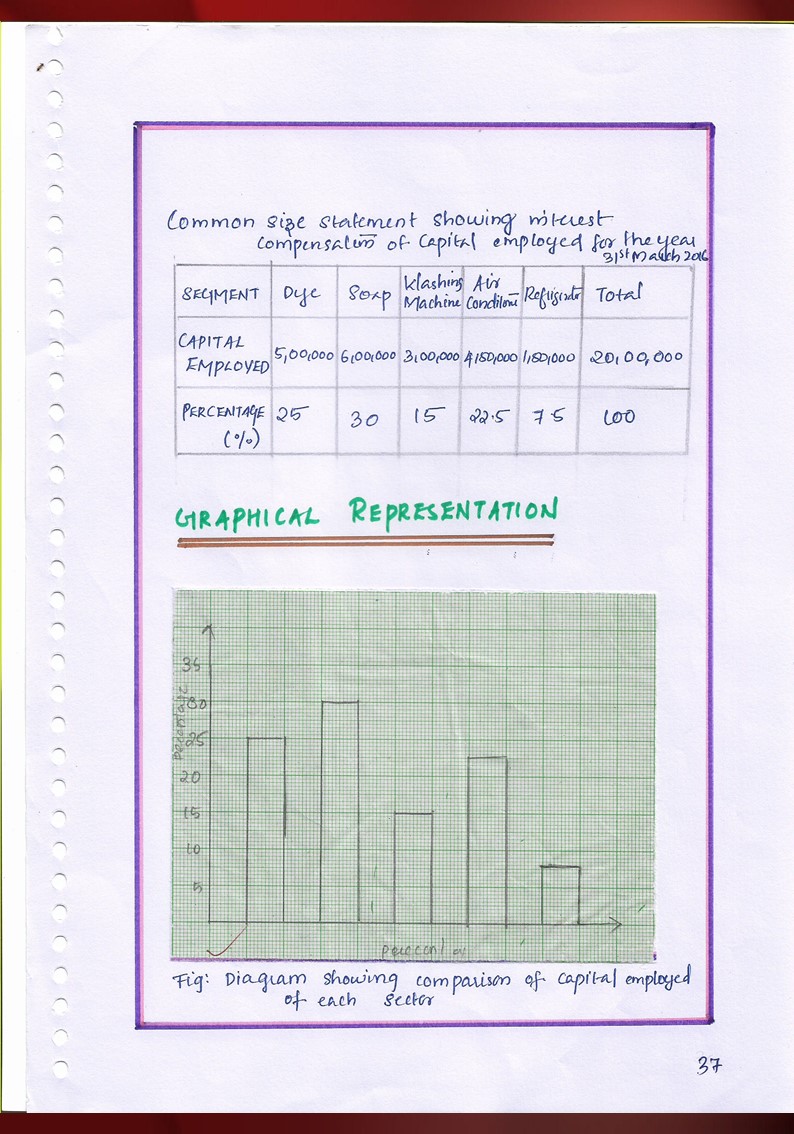 Common size statement showing interest
compensation of Capital employed for the year
31st March 2016
SEGMENT Dye Soap Washing Machine Air Condition Refrigirator Total
CAPITAL EMPLOYED 5,00,000 6,00,000 3,00,000 4,50,000 1,50,000 20,00,000
PERCENTAGE (%) 25 30 15 22.5 7.5 100
GRAPHICAL REPRESENTATION
35
30
25
20
15
10
5
percentage
Fig: Diagram showing comparison of Capital employed
of each Sector
37